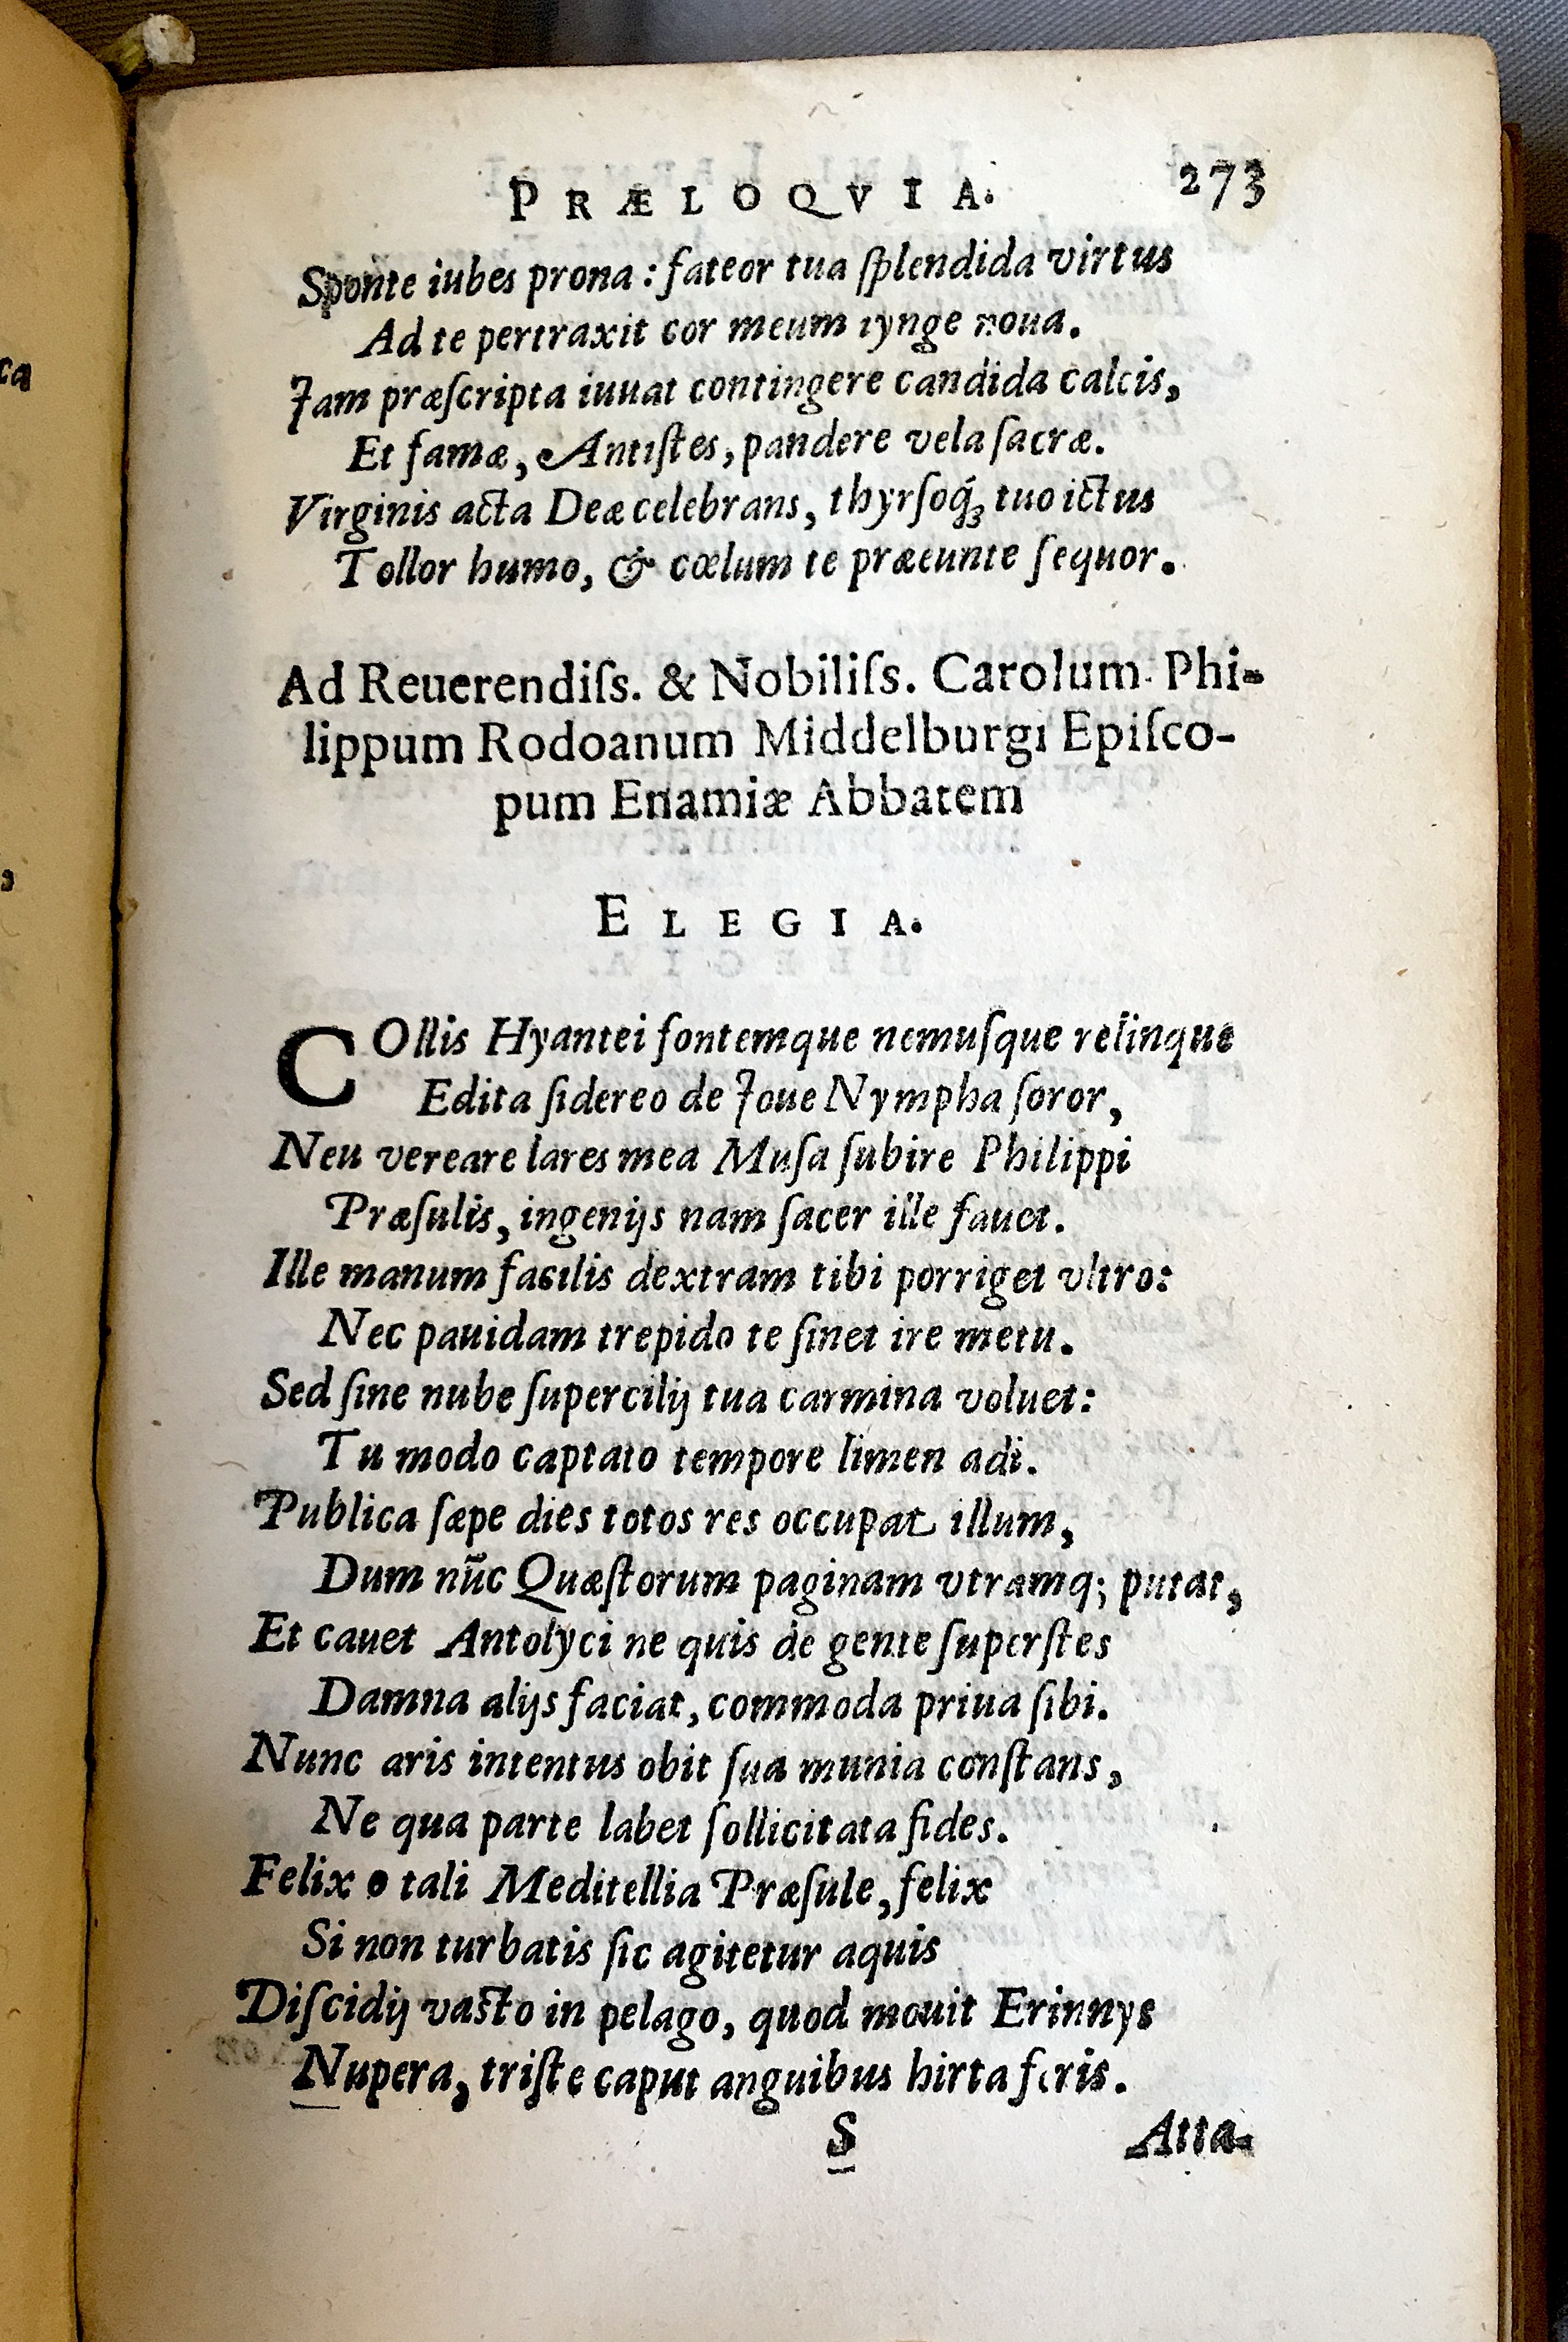 PRÆLOQVIA. 273
Sponte iubes prona: fateor tua ſplendida virtus
Ad te pertraxit cor meum iynge noua.
Iam præſcripta iuuat contingere candida calcis,
Et famæ, Antiſtes, pandere vela ſacræ.
Virginis acta Deæ celebrans, thyrſoq́ꝫ tuo ictus
Tollor humo, & cœlum te præeunte ſequor.
Ad Reuerendiſs. & Nobiliſs. Carolum Phi-
lippum Rodoanum Middelburgi Epiſco-
pum Enamiæ Abbatem
ELEGIA.
COllis Hyantei fontemque nemuſque relinque
Edita ſidereo de Ioue Nympha ſoror,
Neu vereare lares mea Muſa ſubire Philippi
Præſulis, ingenijs nam ſacer ille fauet.
Ille manum facilis dextram tibi porriget vltro:
Nec pauidam trepido te ſinet ire metu.
Sed ſine nube ſupercilij tua carmina voluet:
Tu modo captato tempore limen adi.
Publica ſæpe dies totos res occupat illum,
Dum nūc Quæſtorum paginam vtramq; putat,
Et cauet Antolyci ne quis de gente ſuperſtes
Damna alijs faciat, commoda priua ſibi.
Nunc aris intentus obit ſua munia conſtans,
Ne qua parte labet ſollicitata fides.
Felix o tali Meditellia Præſule, felix
Si non turbatis ſic agitetur aquis
Diſcidij vaſto in pelago, quod mouit Erinnys
Nupera, triſte caput anguibus hirta feris.
S Atta-
ca
,